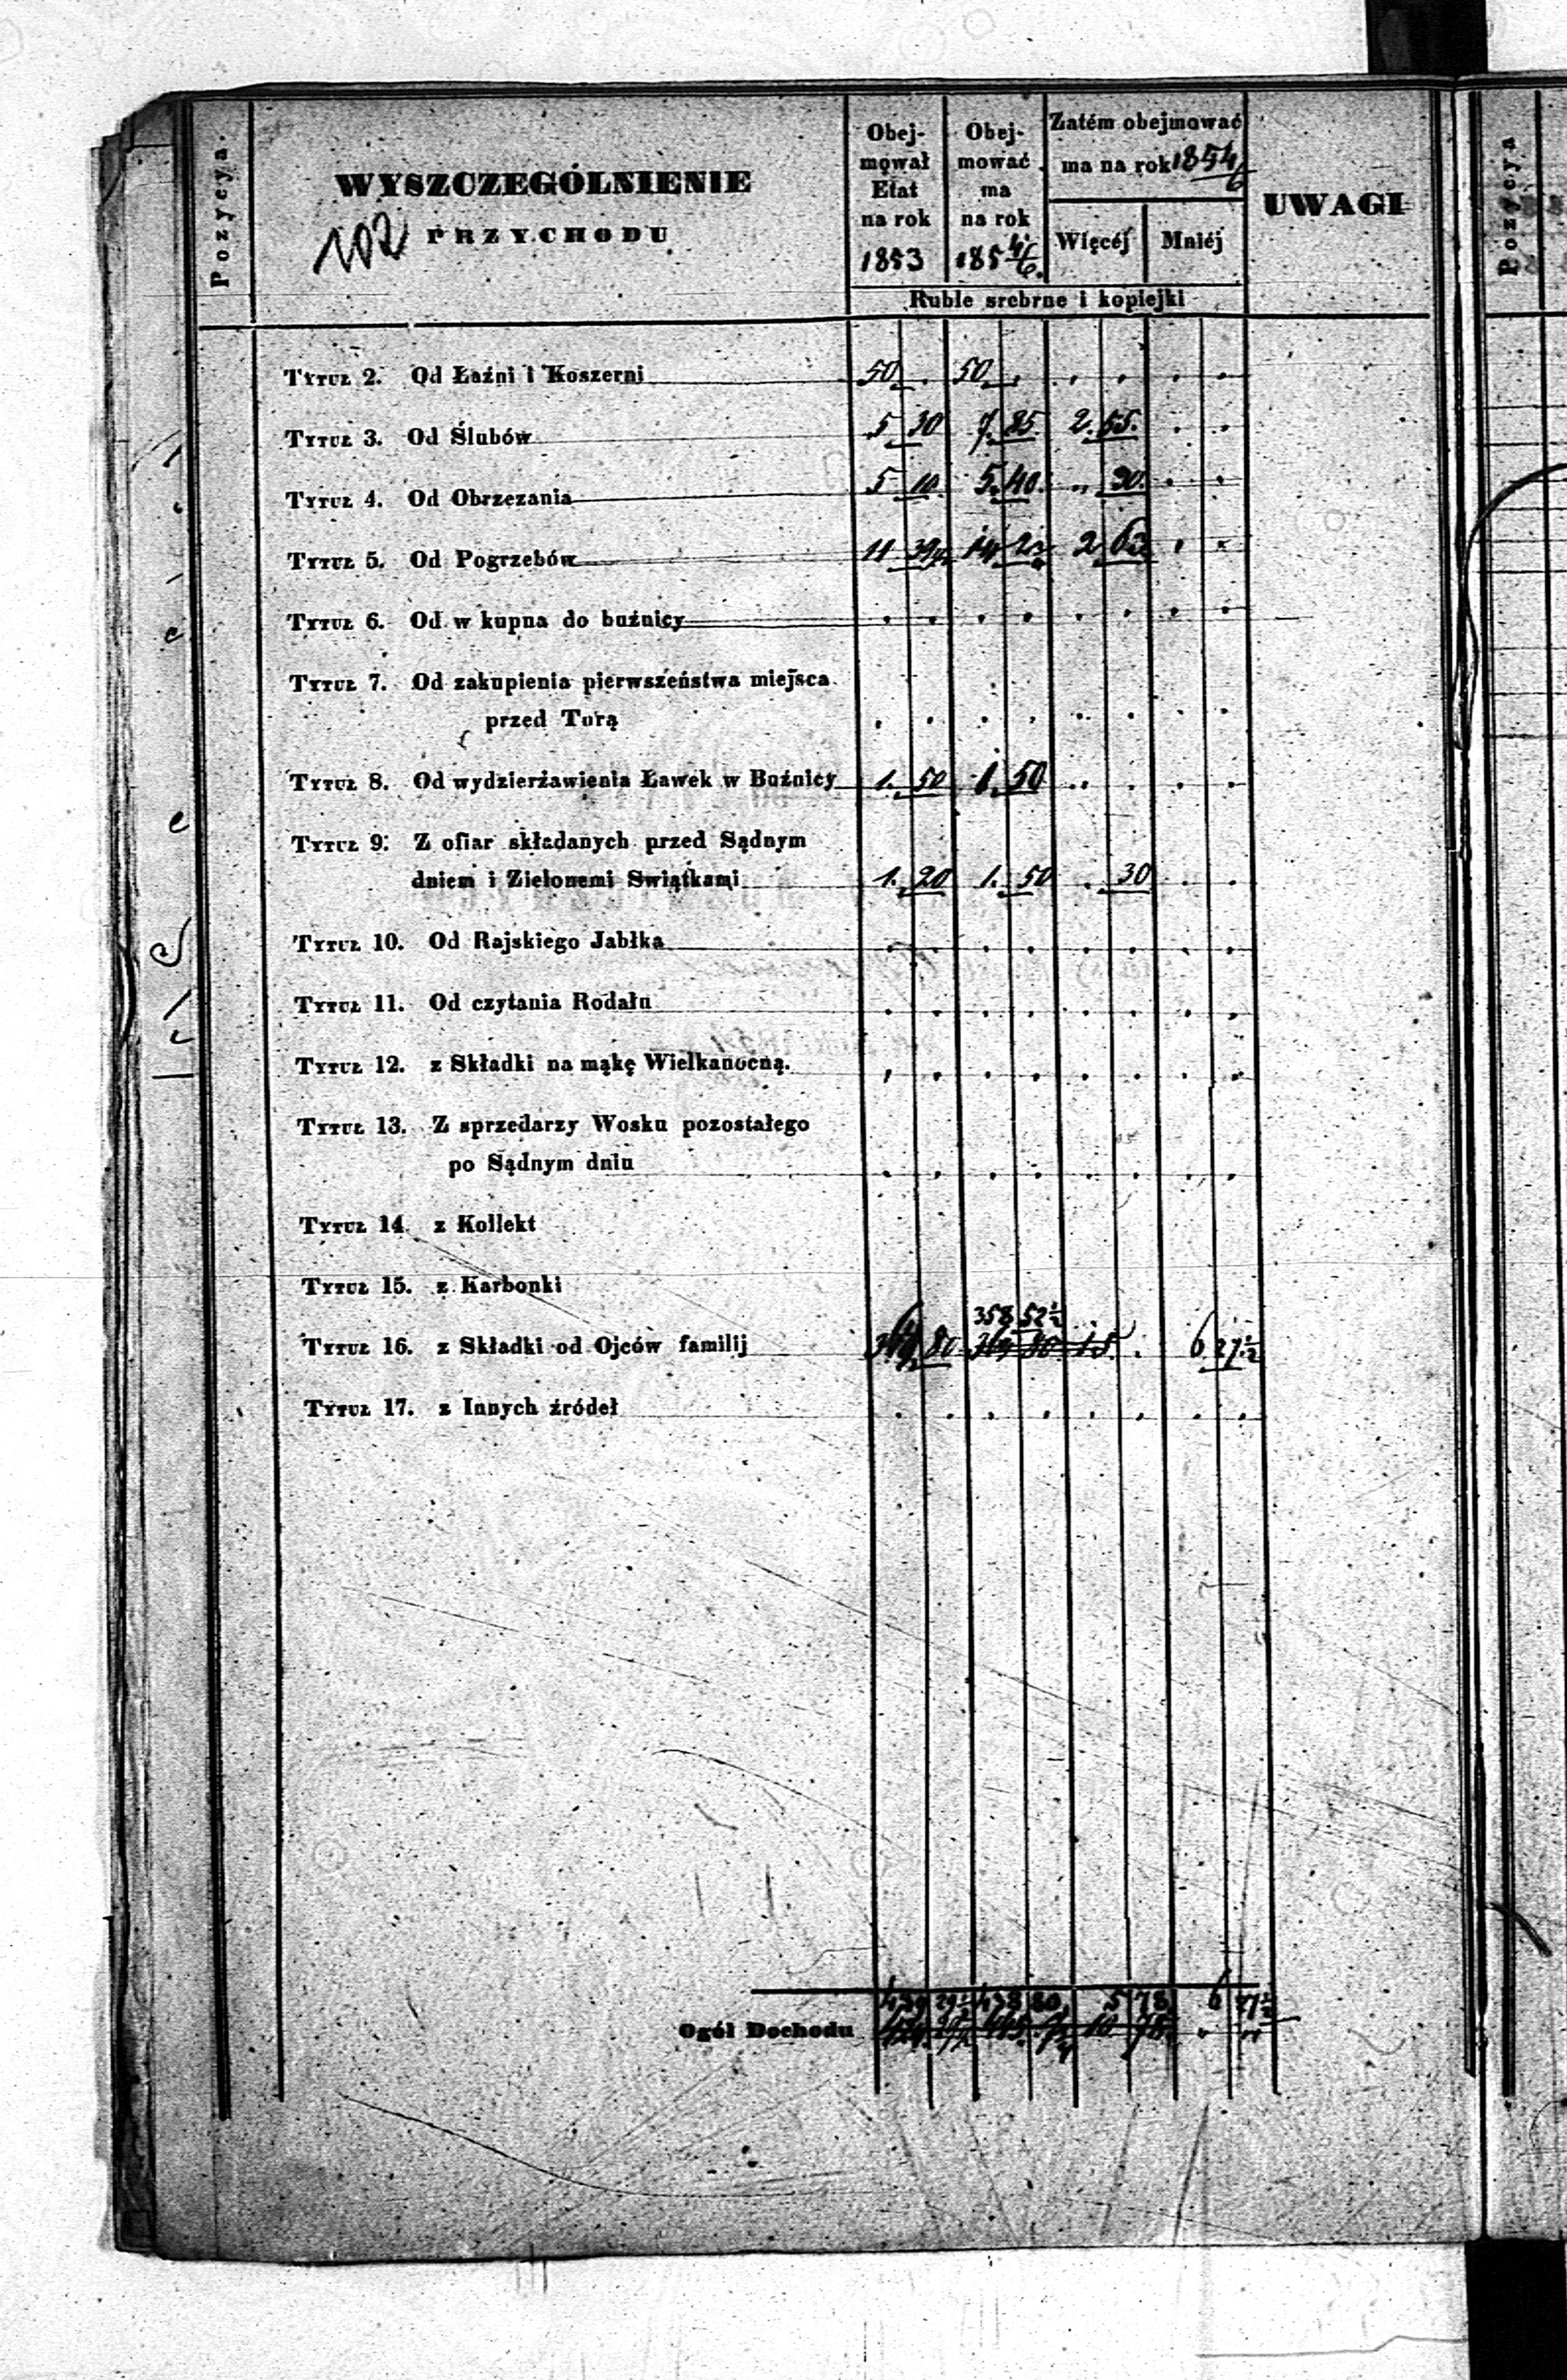 Pozycya.
WYSZCZEGÓLNIENIE
PRZYCHODU
102
Obej-
mował
Etat
na rok
1853
Obej-
mować
ma
na rok
185 4/6.
Zatém obejmować
ma na rok 1854/6
Więcéj
Mniéj
UWAGI
Pozycya
Ruble srebrne i kopiejki
Tytuł 2. Od Łaźni i Koszerni 50 . 50 . . . . .
Tytuł 3. Od Ślubów 5 30 7. 85 2. 55. . .
Tytuł 4. Od Obrzezania 5 10. 5. 40. " 30. . .
Tytuł 5. Od Pogrzebów 11 14 2 . .
Tytuł 6. Od w kupna do buźnicy . . . . . . . .
Tytuł 7. Od zakupienia pierwszeństwa miejsca
przed Torą . . . . . . . .
Tytuł 8. Od wydzierżawienia Ławek w Buźnicy 1. 50 1. 50 . . . .
Tytuł 9. Z ofiar składanych przed Sądnym
dniem i Zielonemi Swiątkami 1. 20 1. 50 . 30 . .
Tytuł 10. Od Rajskiego Jabłka . . . . . . . .
Tytuł 11. Od czytania Rodału . . . . . . . .
Tytuł 12. z Składki na mąkę Wielkanocną. . . . . . . . .
Tytuł 13. Z sprzedarzy Wosku pozostałego
po Sądnym dniu . . . . . . . .
Tytuł 14. z Kollekt
Tytuł 15. z Karbonki
358 52½
Tytuł 16. z Składki od Ojców familij 364 80 364 80 . 6 27½
Tytuł 17. z Innych źródeł . . . . . . . .
439 29½ 438 80 5 78 6 27½
Ogół Dochodu 10 78